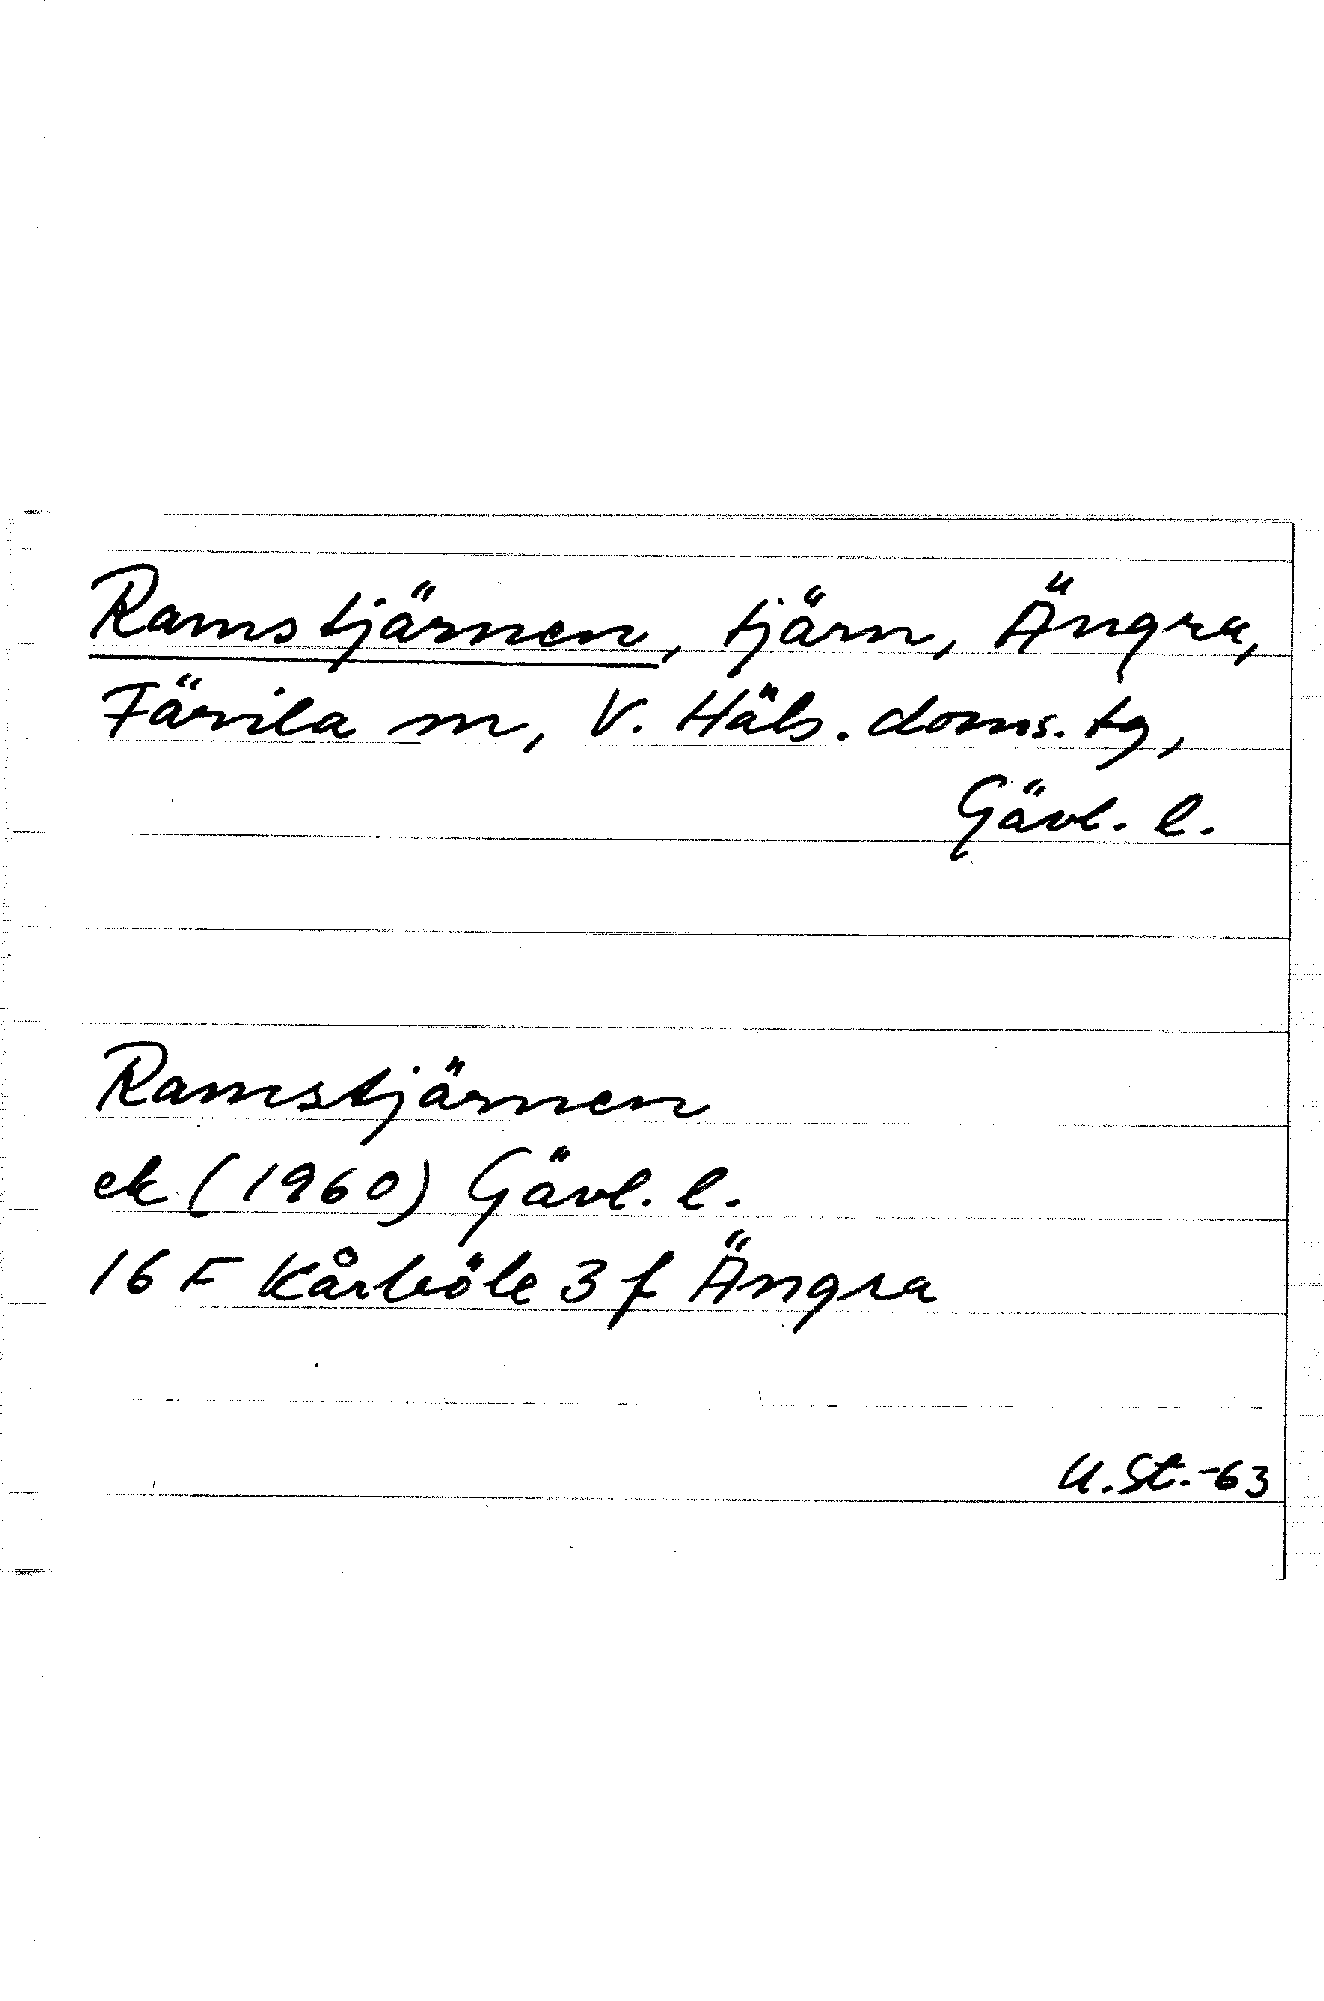 Ramstjärnen, tjärn, Ängra,
Färila sn, V. Häls. doms. tg,
Gävl. l.
Ramstjärnen
ek (1960) Gävl. l.
16 F Kårböle 3 f Ängra
U.St.-63